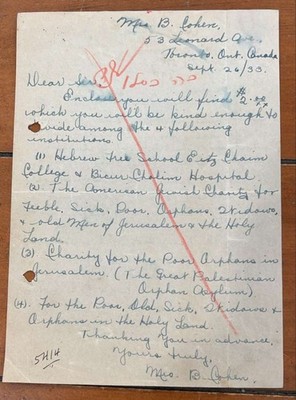 Mrs B. Cohen,
53 Leonard Ave.
Toronto. Ont. Canada
Sept. 26/33.
Dear Sir,
Enclose you will find $2.00
which you will be kind enough to
divide among the 4 following
institutions.
(1) Hebrew Free School Eitz Chaim
College & Bicur Cholim Hospital.
(2. The American Jewish Charity for
Feeble, Sick, Poor, Orphans, Widows,
& old Men of Jerusalem & the Holy
Land.
(3) Charity for the Poor Orphans in
Jerusalem. (The Great Palestinian
Orphan Asylum)
(4). For the Poor, Old, Sick, Widows &
Orphans in the Holy Land.
Thanking You in advance.
Yours truly,
Mrs. B. Cohen.
5414